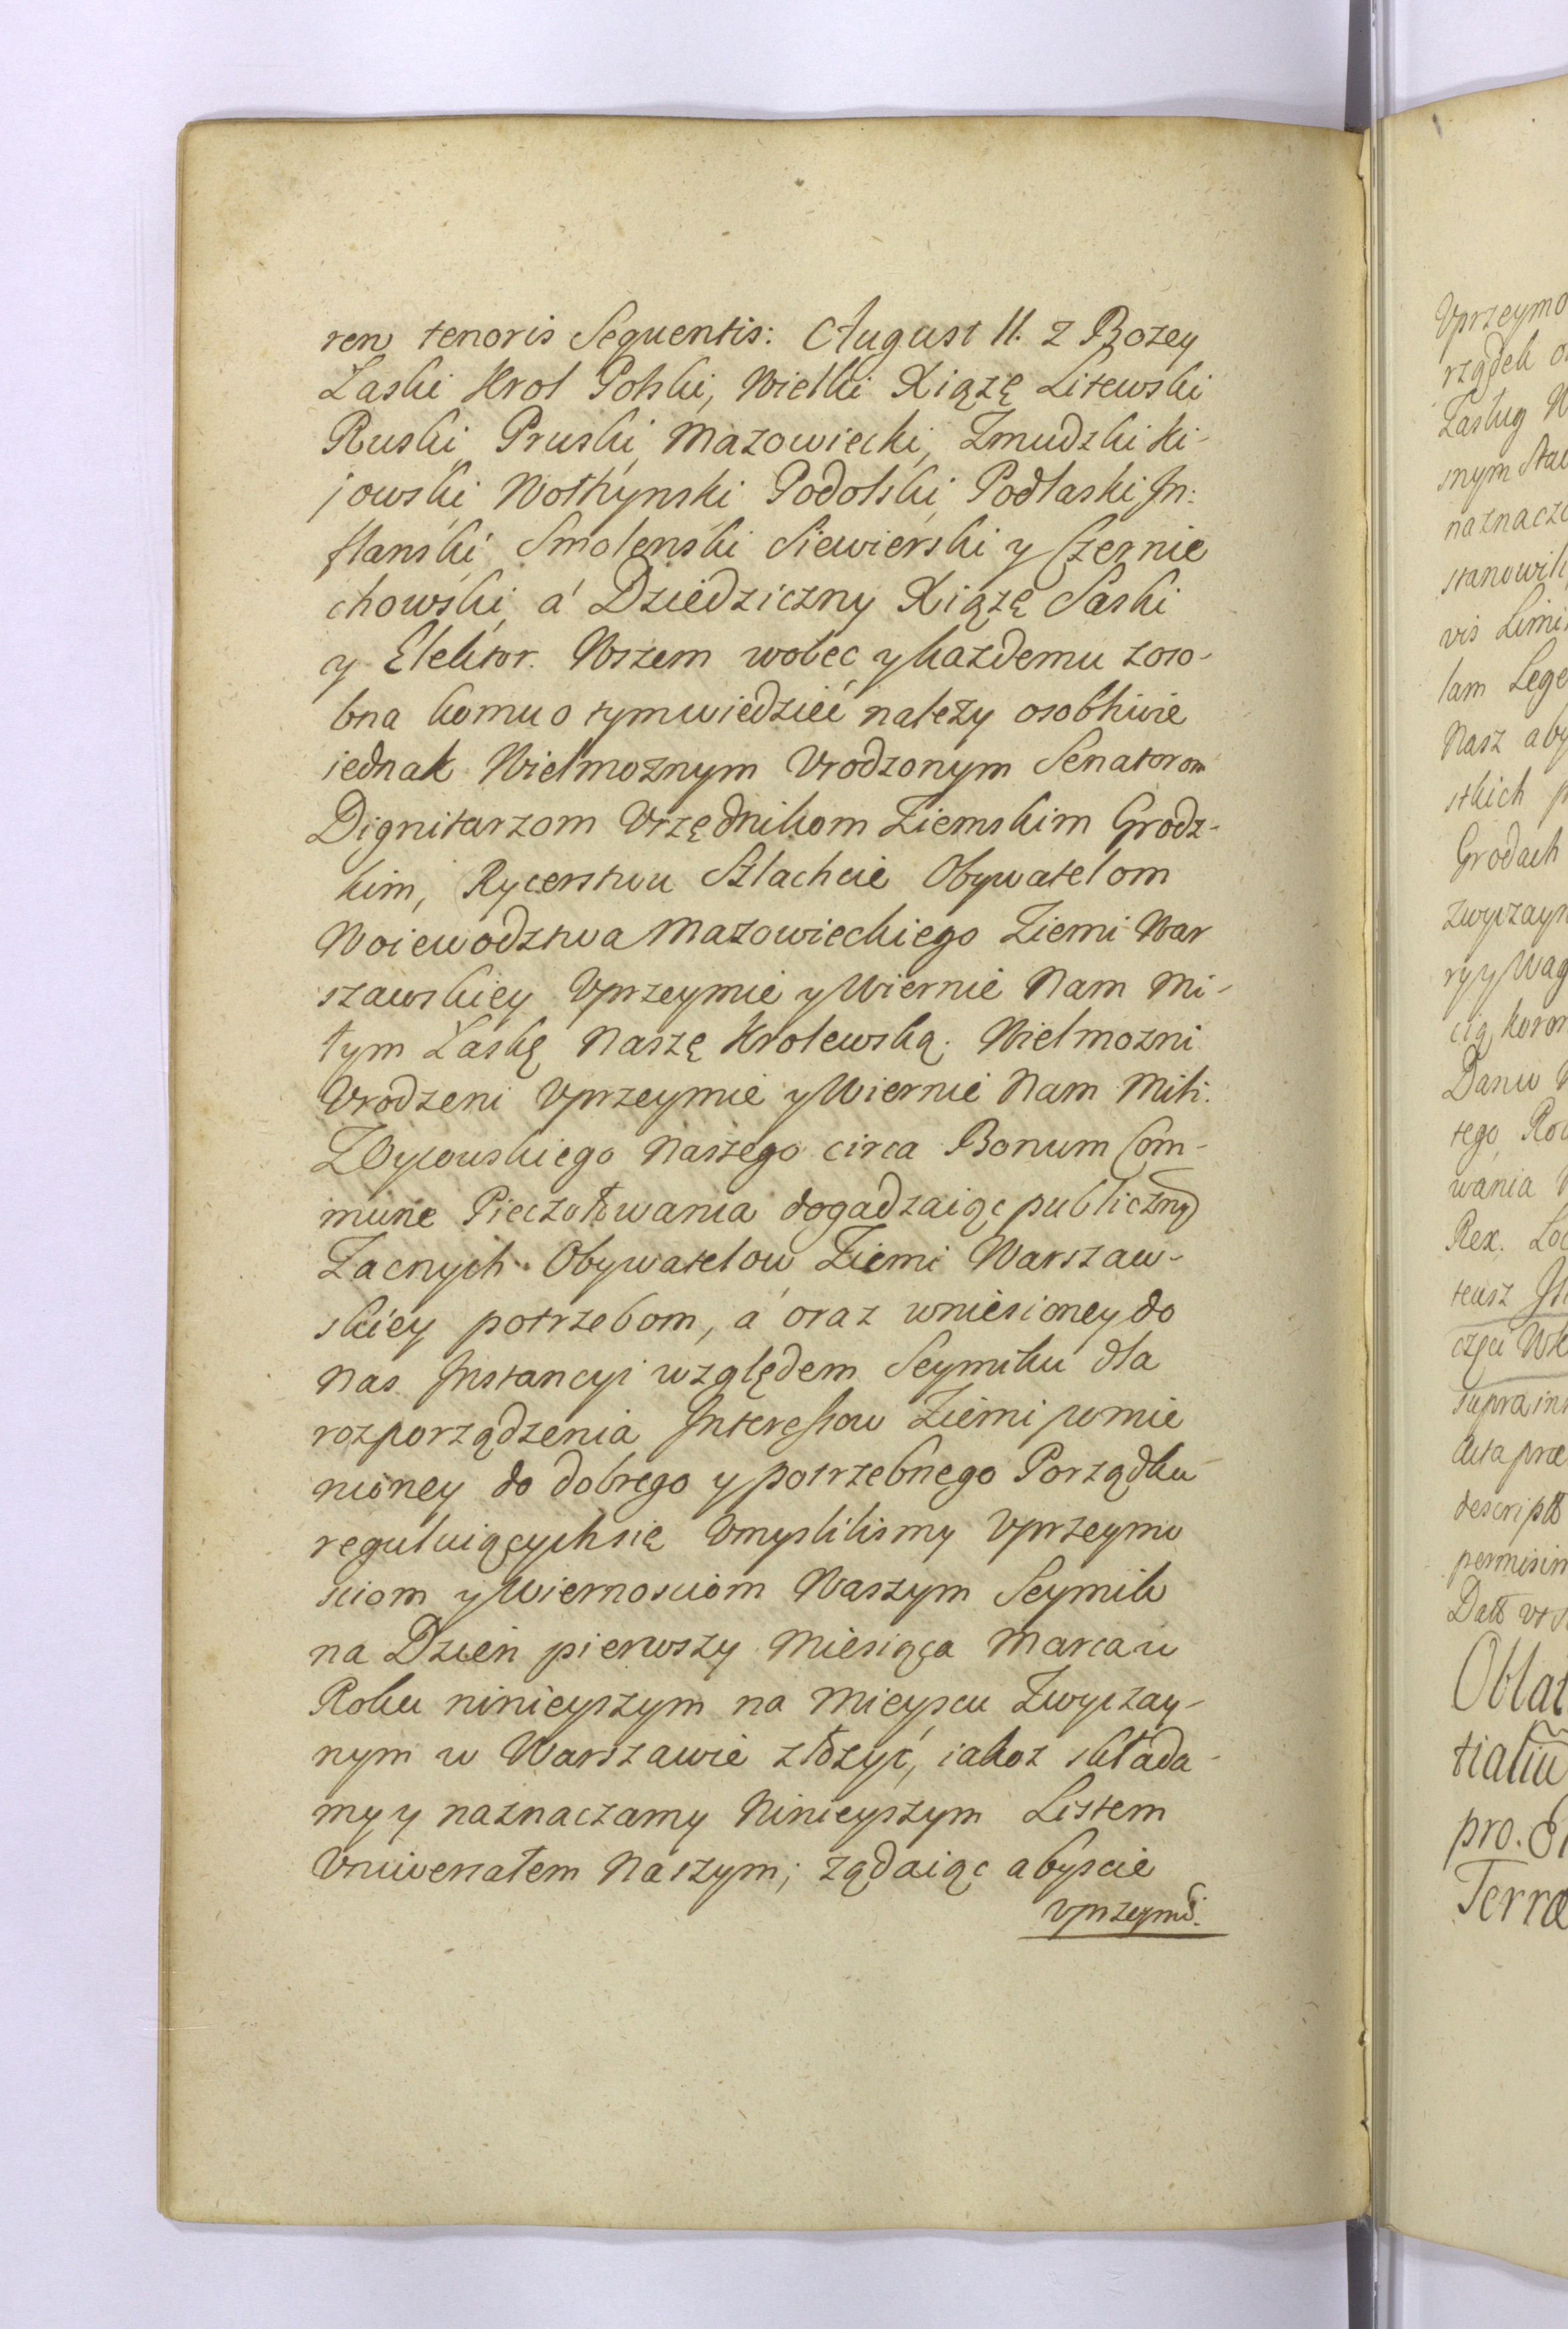 ren tenoris Sequentis: August II. z Bozey
Łaski Krol Polski, Wielki Xiązę Litewski
Ruski Pruski, Mazowiecki, Zmudzki Ki-
jowski Wołhynski Podolski, Podlaski In:
flanski, Smolenski Siewierski y Czernie
chowski, á Dziedziczny Xiązę Saski
y Elektor. Wszem wobec y kazdemu zoso-
bna komu o tym wiedzieć nalezy osobliwie
iednak Wielmoznym Vrodzonym Senatorom
Dignitarzom Vrzędnikom Ziemskim Grodz-
kim, Rycerstwu Szlachcie Obywatelom
Woiewodztwa Mazowieckiego Ziemi War
szawskiey Vprzeymie y Wiernie Nam Mi-
łym Łaskę Naszę Krolewską. Wielmozni
Vrodzeni Vprzeymie y Wiernie Nam Mili.
Z Oycowskiego Naszego circa Bonum Com-
mune Pieczołowania dogadzaiąc publiczny
Zacnych Obywatelow Ziemi Warszaw-
skiey potrzebom, á oraz wniesioney do
Nas Instancyi względem Seymiku dla
rozporządzenia Interessow Ziemi pomie
nioney do dobrego y potrzebnego Porządku
reguluiących się Vmyslilismy Vprzeymo
sciom y Wiernosciom Waszym Seymik
na Dzien pierwszy Miesiąca Marca w
Roku ninieyszym na Mieyscu Zwyczay-
nym w Warszawie złozyć, iakoz składa-
my y naznaczamy Ninieyszym Listem
Vniwersałem Naszym; ządaiąc abyscie
vprzeymś.
Vprzeymo
rządek
Zasług
snym
naznacz
stanowili
vis
lam Lege
Nasz aby
stkich
Grodach
Zwyczayn
ry y Wag
cią, koron
Danu
tego, Ro
wania
Rex.
teusz
częci
supra in
Acta præ
descript
permisim
Oblat
tialiũ
pro.
Terræ